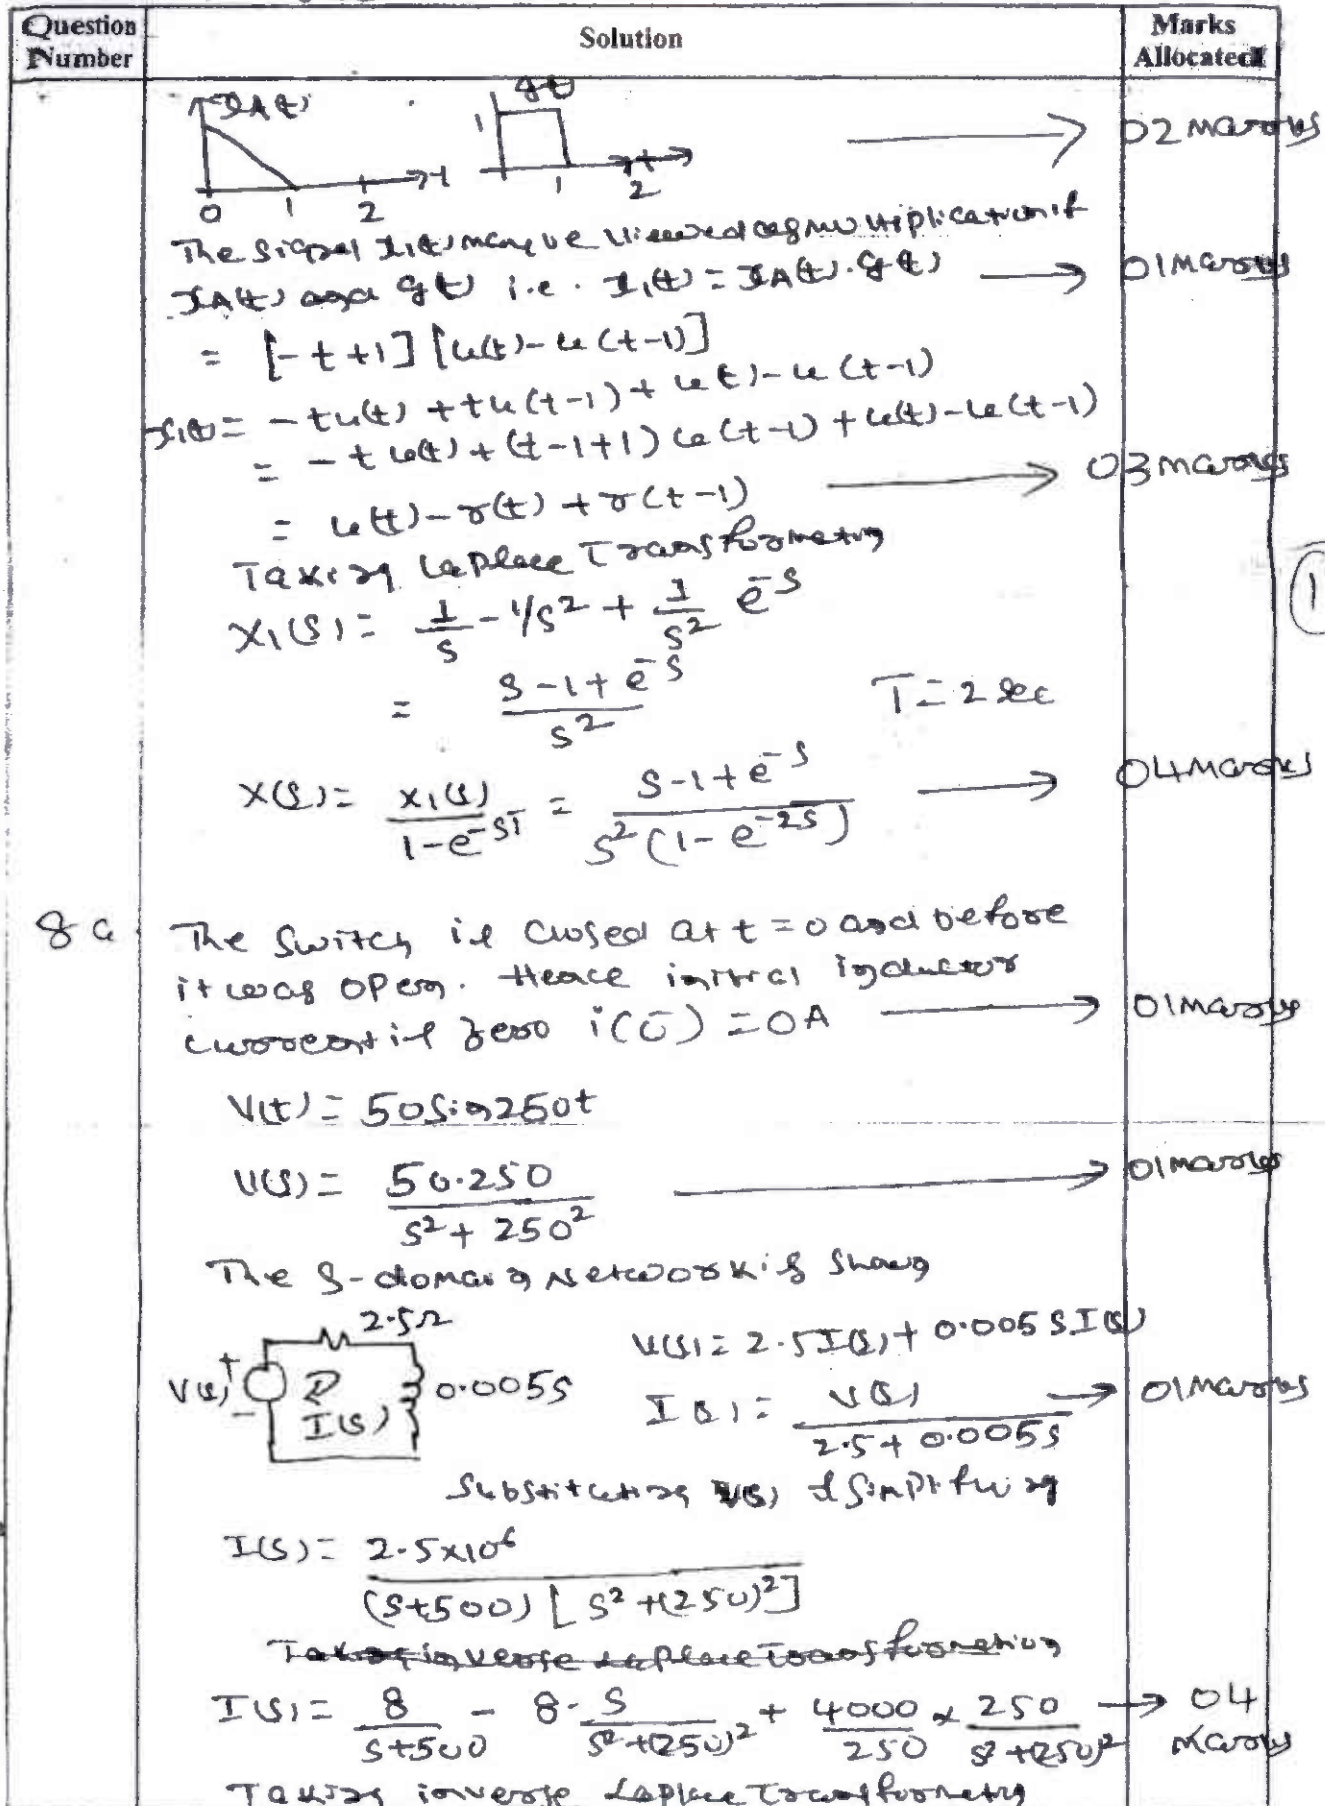 Question Number
Solution
Marks Allocated
xA(t)
g(t)
1
t
t
0 1 2
1 2
02 marks
The signal x1(t) may be viewed as multiplication of
xA(t) and g(t) i.e. x1(t) = xA(t).g(t) → 01 marks
= [-t+1][u(t)-u(t-1)]
x1(t) = -tu(t) + tu(t-1) + u(t)-u(t-1)
= -tu(t) + (t-1+1)u(t-1) + u(t)-u(t-1)
= u(t)-r(t)+r(t-1) → 03 marks
Taking Laplace Transformation
X1(s) = 1/s - 1/s² + 1/s² e^-s
= (s-1+e^-s)/s² T = 2 sec
X(s) = X1(s)/(1-e^-sT) = (s-1+e^-s)/(s²(1-e^-2s)) → 04 marks
8a The switch is closed at t=0 and before
it was open. Hence initial inductor
current is zero i(0^-) = 0A → 01 marks
V(t) = 50sin250t
V(s) = 50.250/(s²+250²) → 01 marks
The s-domain Network is shown
2.5Ω
V(s) + -
I(s)
0.005s
V(s) = 2.5I(s) + 0.005sI(s)
I(s) = V(s)/(2.5+0.005s) → 01 marks
Substituting V(s) & simplifying
I(s) = 2.5x10⁶/((s+500)[s²+(250)²])
Taking inverse Laplace Transformation
I(s) = 8/(s+500) - 8.s/(s²+(250)²) + 4000/250 x 250/(s²+(250)²) → 04 marks
Taking inverse Laplace Transformation